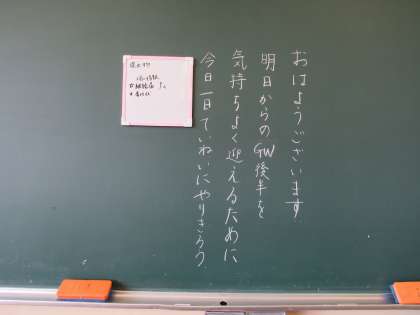 おはようございます。
明日からのGW後半を
気持ちよく迎えるために
今日一日ていねいにやりきろう
提出物